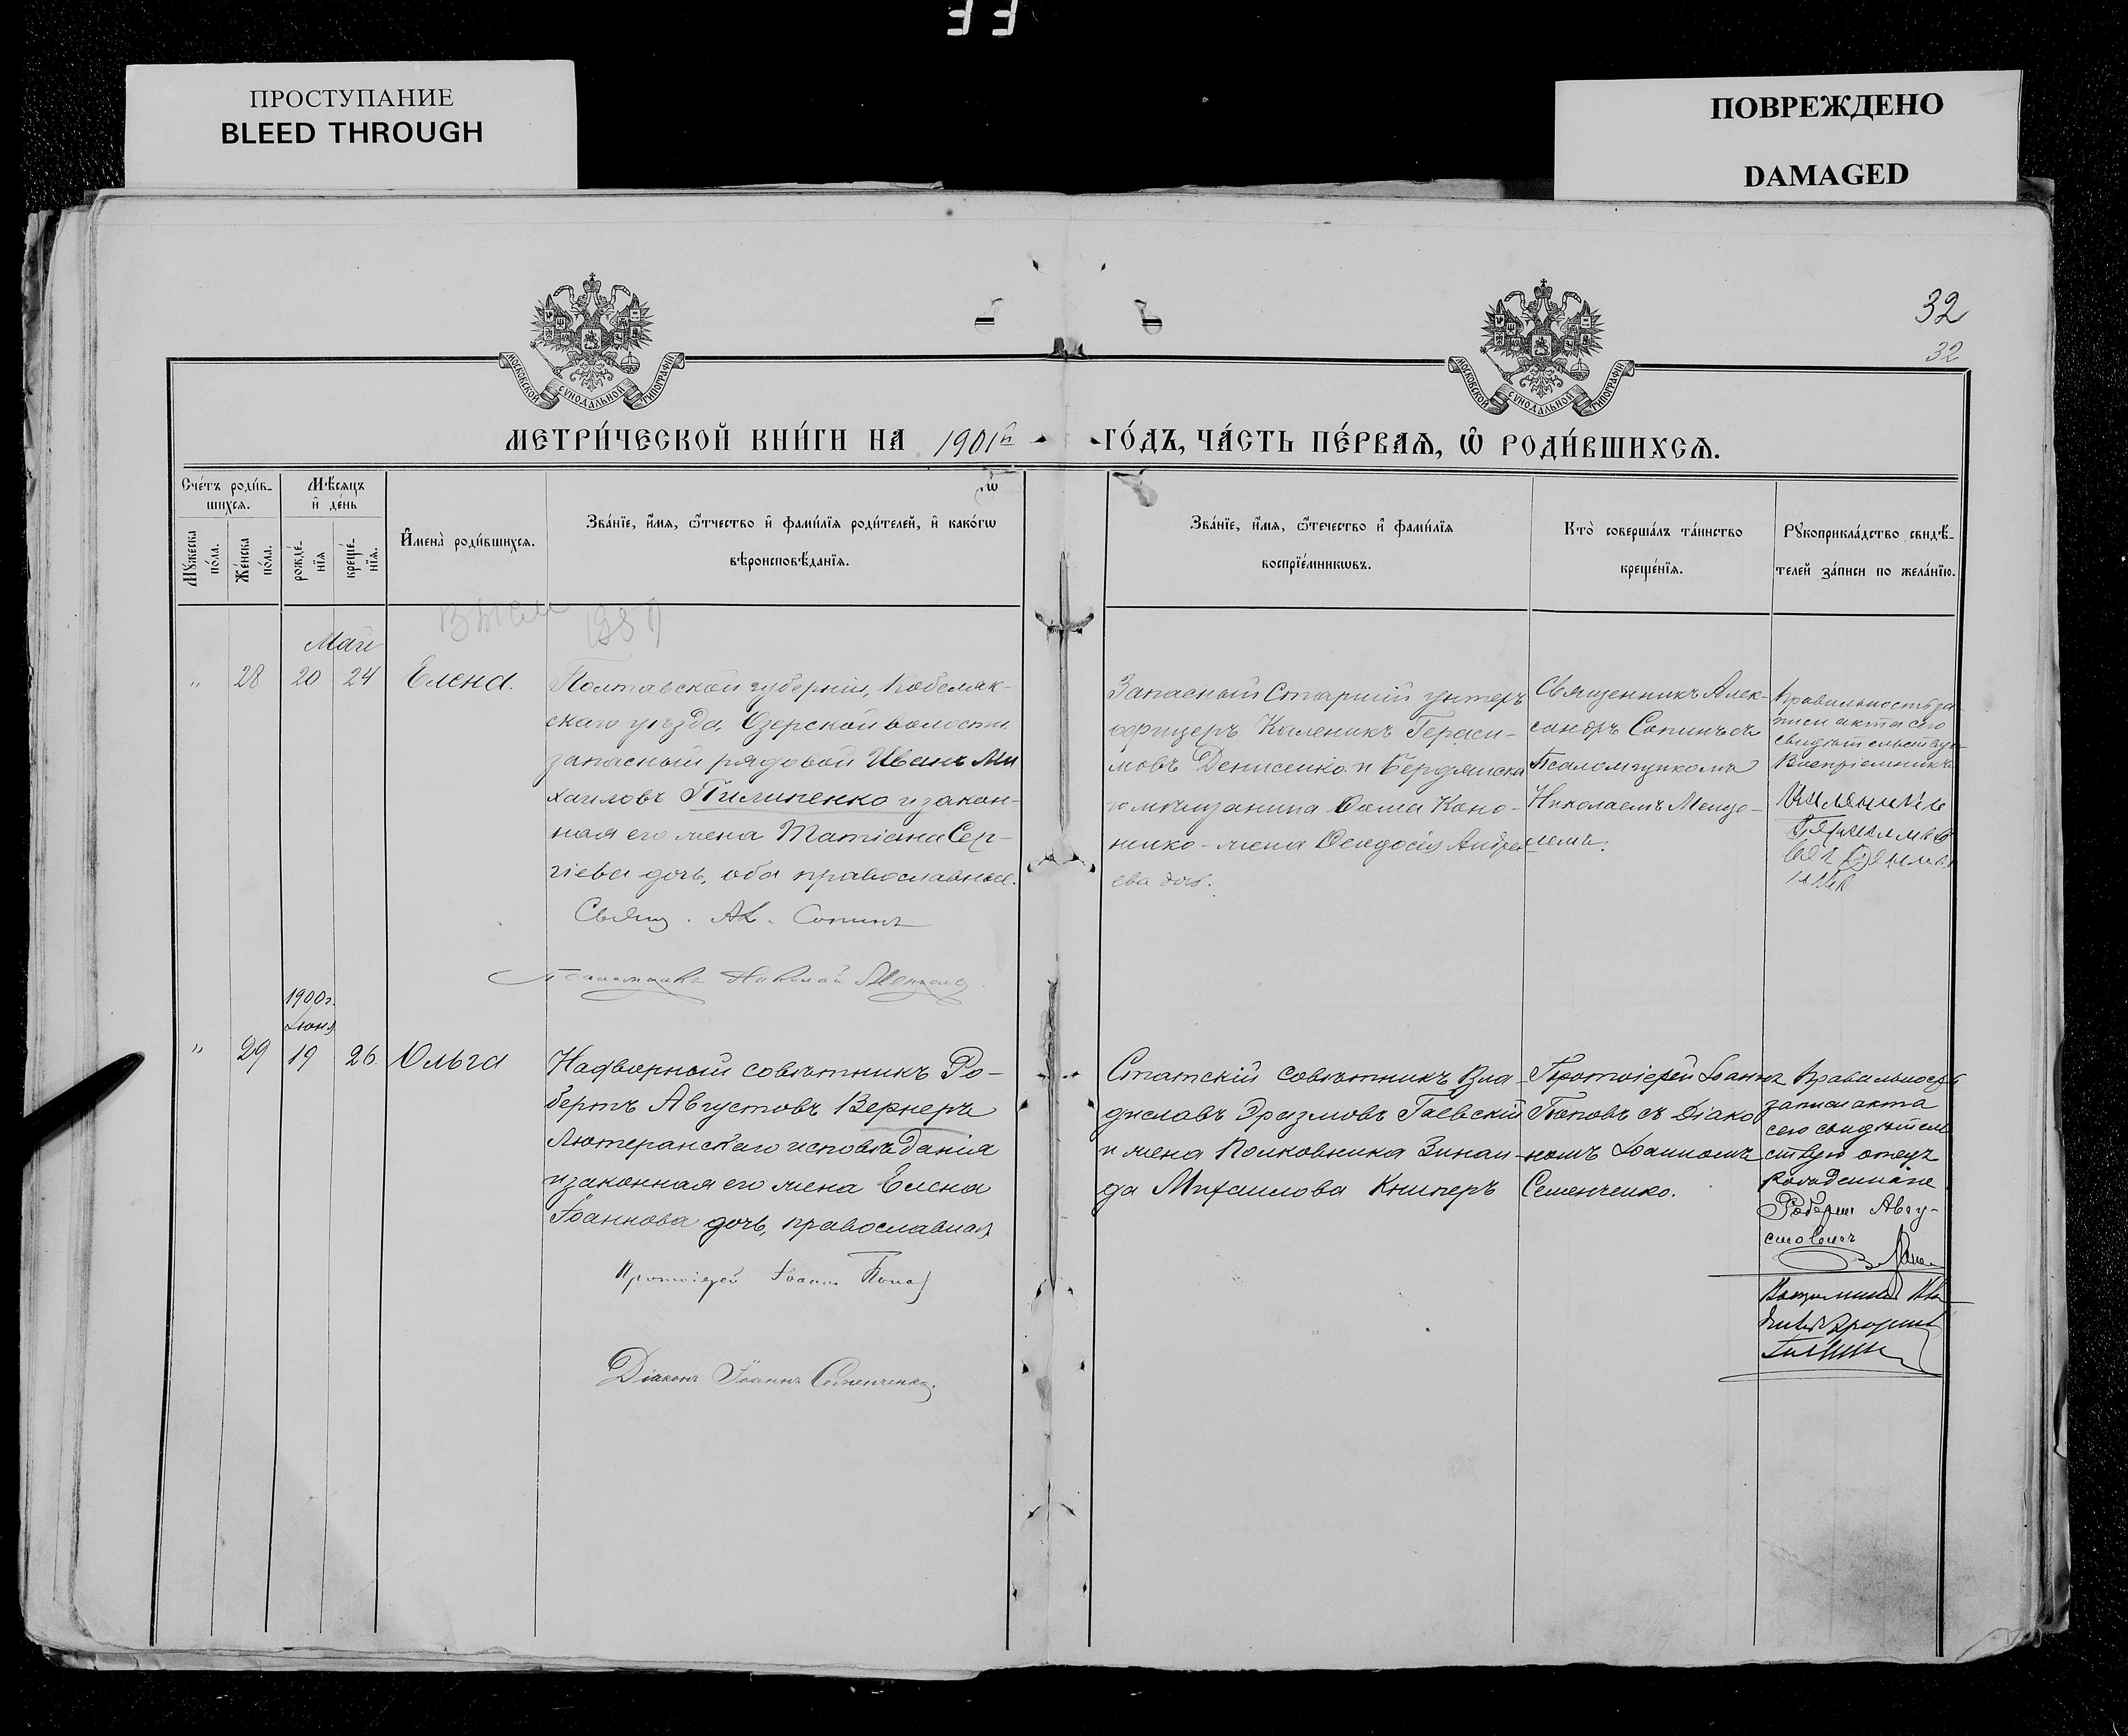 ПРОСТУПАНИЕ
BLEED THROUGH
ПОВРЕЖДЕНО
DAMAGED
32
32
МОСКОВСКОЙ СУНОДАЛЬНОЙ ТИПОГРАФІИ
МОСКОВСКОЙ СУНОДАЛЬНОЙ ТИПОГРАФІИ
МЕТРИ́ЧЕСКОЙ КНИ́ГИ НА 1901й ГО́ДЪ, ЧА́СТЬ ПЕ́РВАѦ, Ѡ҆ РОДИ́ВШИХСѦ.
Сче́тъ роди́в-
шихсѧ.
Мꙋжеска
по́ла.
Же́нска
по́ла.
Мѣ́сѧцъ
и҆ де́нь
рожде́-
нїѧ
креще́-
нїѧ.
И҆мена̀ роди́вшихсѧ.
Зва́нїе, и҆́мѧ, ѻ҆́тчество и҆ фами́лїѧ роди́телей, и҆ како́гѡ
вѣроисповѣ́данїѧ.
Зва́нїе, и҆́мѧ, ѻ҆те́чество и҆ фами́лїѧ
воспрїе́мникѡвъ.
Кто̀ соверша́лъ та́инство
креще́нїѧ.
Рꙋкоприкла́дство свидѣ́-
телей за́писи по жела́нїю.
Май
" 28 20 24 Елена.
Полтавской губерніи, Кобеляк-
скаго уѣзда, Озерской волости,
запасный рядовой Иванъ Ми
хаиловъ Пилипенко и закон-
ная его жена Татіана Сер-
гіева дочь, оба православные.
Свящ. Ал. Сопинъ
Псаломщикъ Николай
Запасный Старшій унтеръ
офицеръ Каленикъ Гераси-
мовъ Денисенко и Бердянска
го мѣщанина Фомы Коно-
ненко - жена Феодосія Андре
ева дочь.
Священникъ Алек-
сандръ Сопинъ съ
Псаломщикомъ
Николаемъ
Правильность за
писи акта сего
свидѣтельствую
Воспріемникъ
1900 г.
Іюня
" 29 19 26 Ольга
Надворный совѣтникъ Ро-
бертъ Августовъ Вернеръ
Лютеранскаго исповѣданія
и законная его жена Елена
Іоаннова дочь, православная
Протоіерей Іоаннъ Попов
Діаконъ Іоаннъ Семенченко.
Статскій совѣтникъ Вла-
диславъ Эразмовъ Гаевскій
и жена Полковника Зинаи-
да Михаилова Книперъ
Протоіерей Іоаннъ
Поповъ съ Діако
номъ Іоанномъ
Семенченко.
Правильность
записи акта
сего свидѣтель
ствую отецъ
Робертъ Авгу-
стовичъ